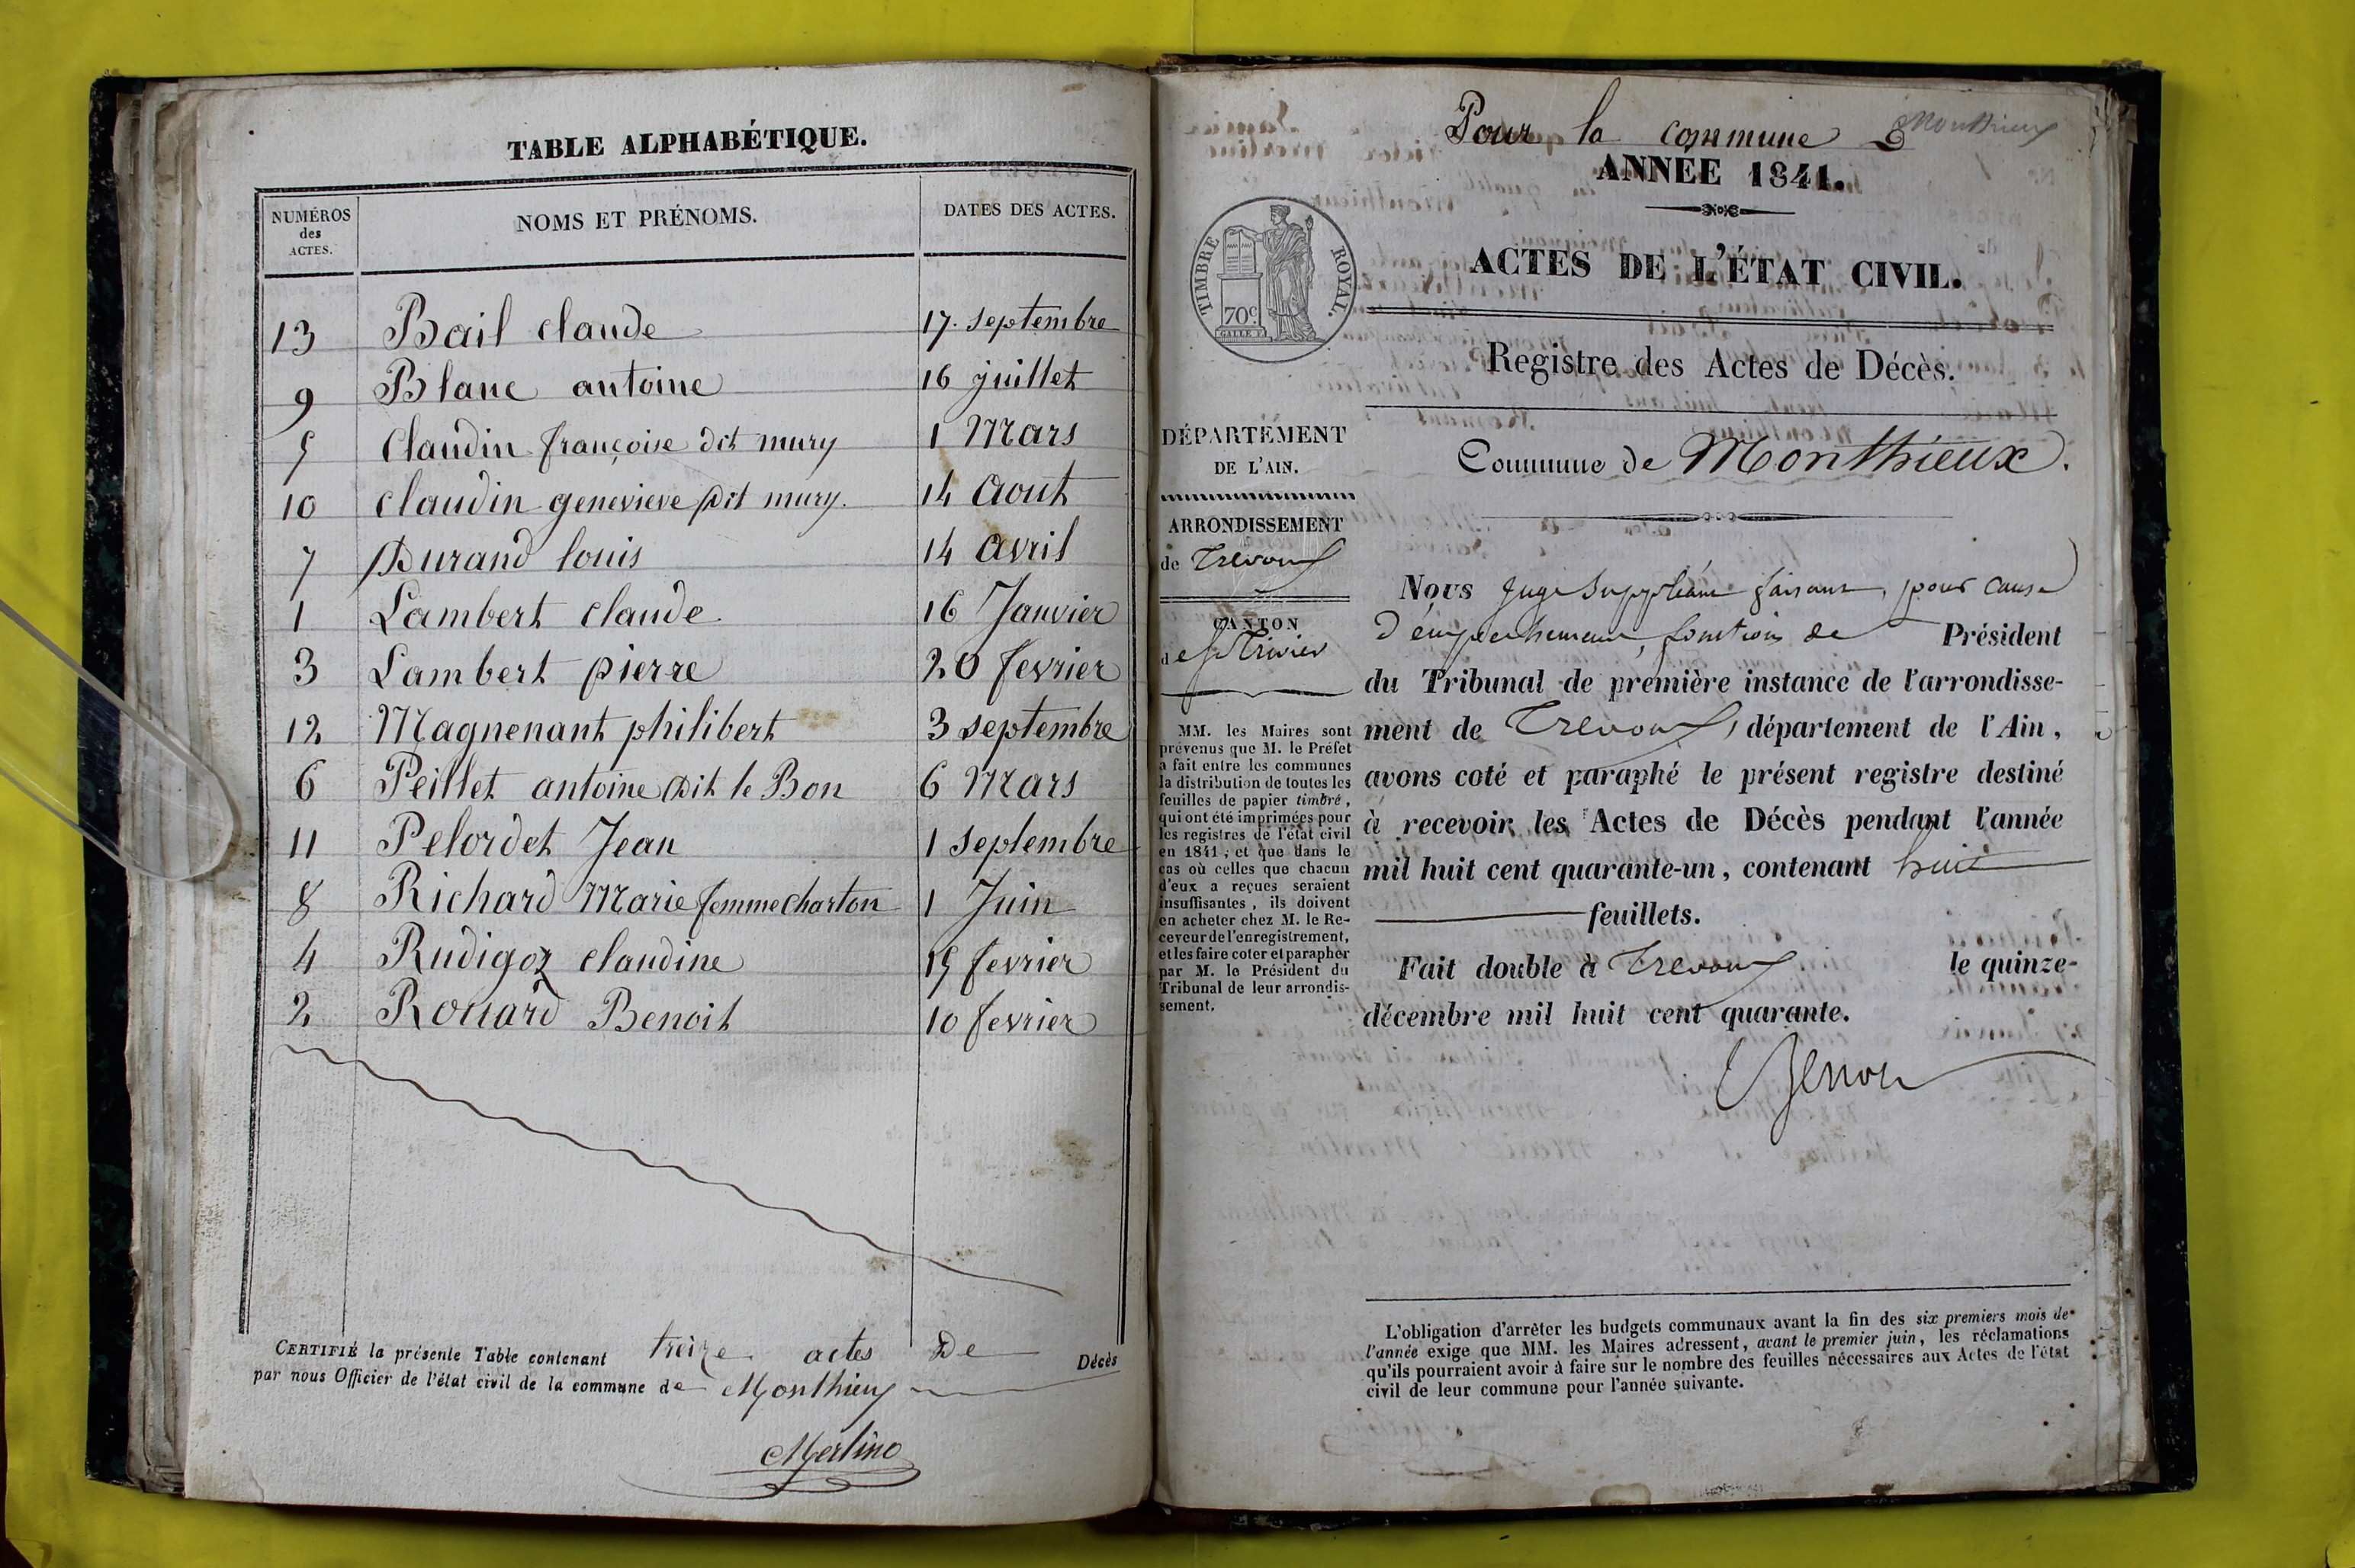 TABLE ALPHABÉTIQUE.
NUMÉROS des ACTES. NOMS ET PRÉNOMS. DATES DES ACTES.
13 Bail claude 17. septembre
9 Blanc antoine 16 juillet
5 Claudin françoise dit mury 1 Mars
10 claudin genevieve dit mury. 14 aout
7 Durand louis 14 avril
1 Lambert claude 16 Janvier
3 Lambert pierre 20 fevrier
12 Magnenant philibert 3 septembre
6 Peillet antoine dit le Bon 6 Mars
11 Pelordet Jean 1 septembre
8 Richard Marie femme charton 1 Juin
4 Rudigoz claudine fevrier
2 Rouard Benoit 10 fevrier
CERTIFIÉ la présente Table contenant treize actes de Décès
par nous Officier de l'état civil de la commune de Monthieux
Merlino
Pour la commune de Monthieux
ANNÉE 1841.
TIMBRE ROYAL.
70c
ACTES DE L'ÉTAT CIVIL.
Registre des Actes de Décès.
Commune de Monthieux.
DÉPARTEMENT
DE L'AIN.
ARRONDISSEMENT
de Trevoux
CANTON
de St Trivier
MM. les Maires sont
prévenus que M. le Préfet
a fait entre les communes
la distribution de toutes les
feuilles de papier timbré,
qui ont été imprimées pour
les registres de l'état civil
en 1841; et que dans le
cas où celles que chacun
d'eux a reçues seraient
insuffisantes, ils doivent
en acheter chez M. le Re-
ceveur de l'enregistrement,
et les faire coter et parapher
par M. le Président du
Tribunal de leur arrondis-
sement.
Nous Juge Suppléant faisant, pour cause
d'empêchement, fonctions de Président
du Tribunal de première instance de l'arrondisse-
ment de Trevoux, département de l'Ain,
avons coté et paraphé le présent registre destiné
à recevoir les Actes de Décès pendant l'année
mil huit cent quarante-un, contenant huit
feuillets.
Fait double à Trevoux le quinze-
décembre mil huit cent quarante.
L'obligation d'arrêter les budgets communaux avant la fin des six premiers mois de
l'année exige que MM. les Maires adressent, avant le premier juin, les réclamations
qu'ils pourraient avoir à faire sur le nombre des feuilles nécessaires aux Actes de l'état
civil de leur commune pour l'année suivante.